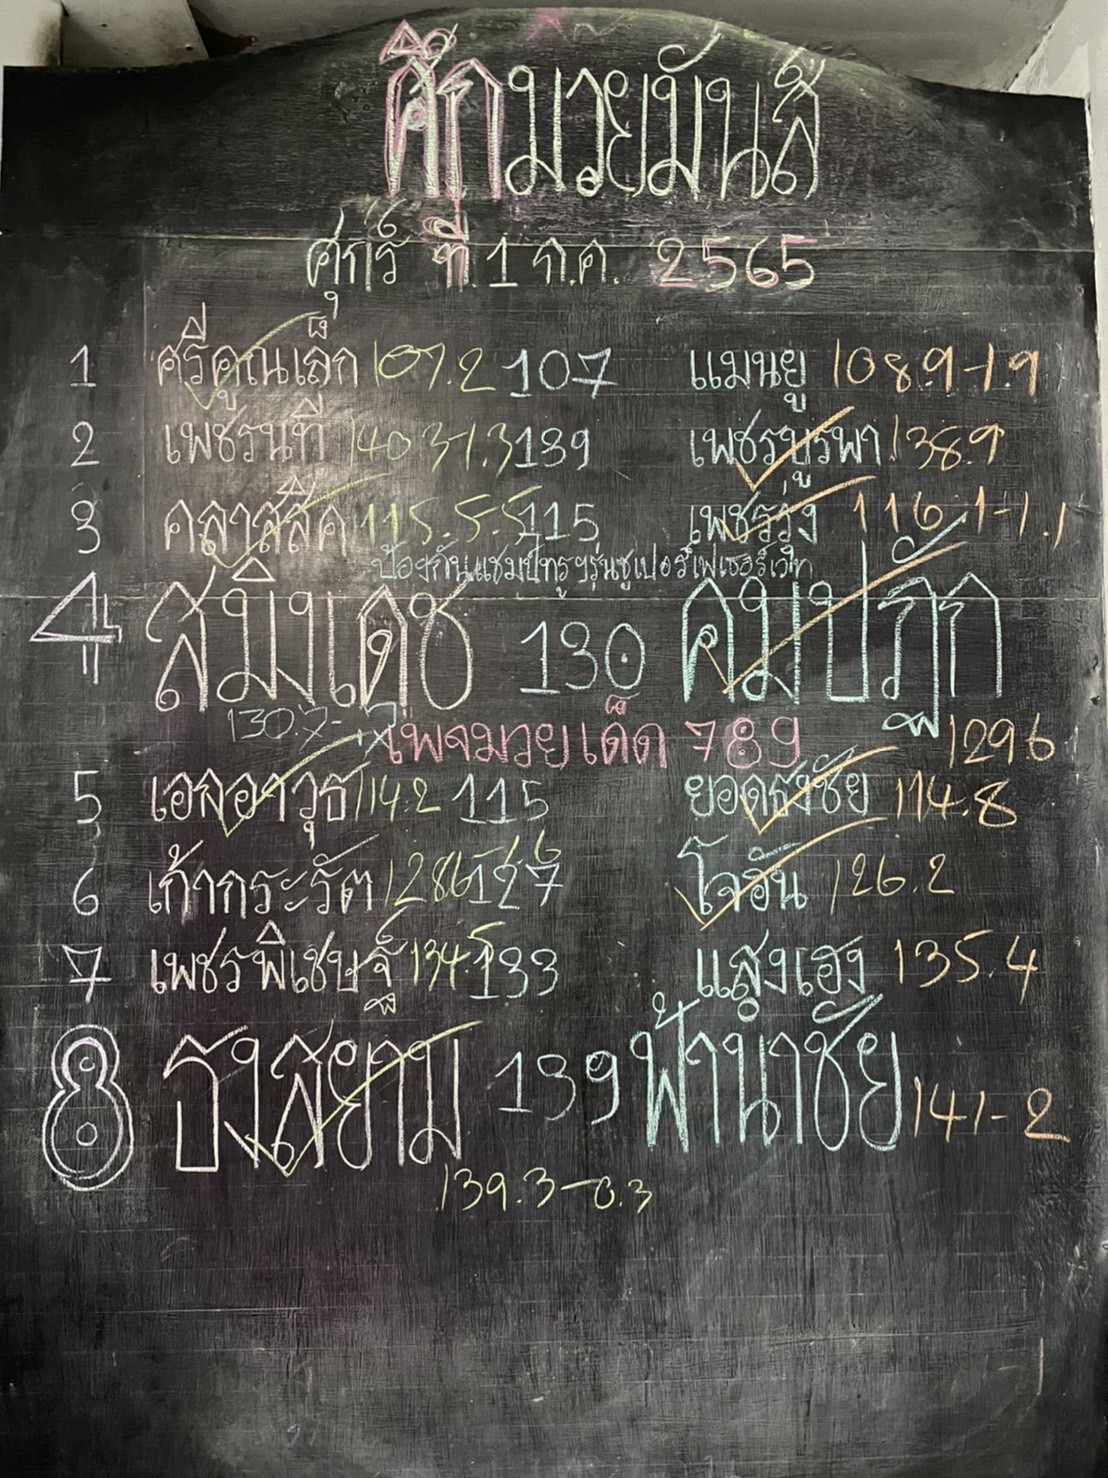 ศึกมวยมันส์
ศุกร์ ที่ 1 ก.ค. 2565
1 ศรีคูณเล็ก 107.2 107 แมนยู 108.9-1.9
2 เพชรนที 140.3-1.3 139 เพชรบูรพา 138.9
3 คลาสสิค 115.5-.5 115 เพชรรุ่ง 116.1-1.1
ป้องกันแชมป์ทรูฯรุ่นซูเปอร์เฟเธอร์เวท
4 สมิงเดช 130 คมปฏัก
130.7-.7 เพจมวยเด็ด 789 129.6
5 เอลอาวุธ 114.2 115 ยอดธงชัย 114.8
6 เก้ากะรัต 128.6-1.6 127 โจอัน 126.2
7 เพชรพิเชษฐ์ 134.5 133 แสงเฮง 135.4
8 ธงสยาม 139 ฟ้านำชัย 141-2
139.3-0.3